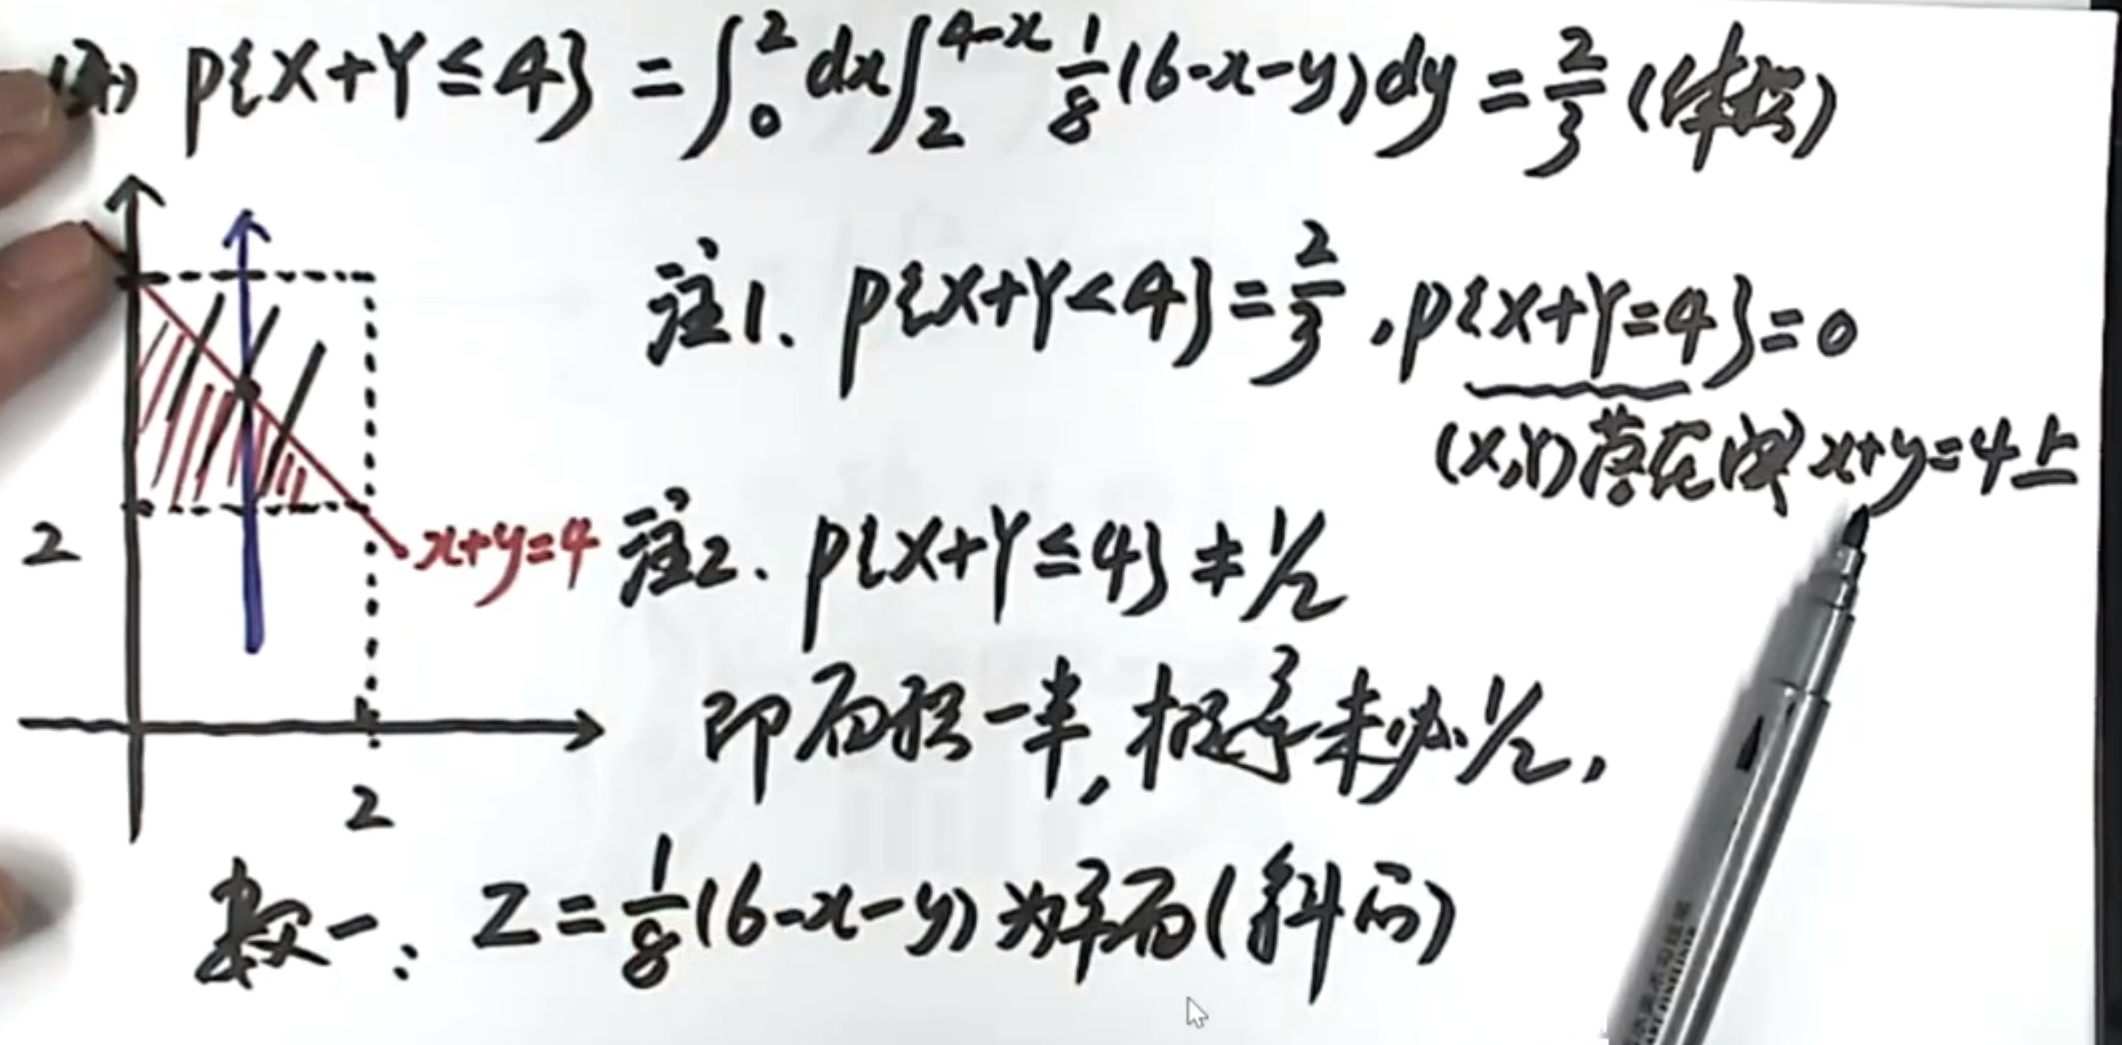 P{X+Y≤4} = ∫₀² dx ∫₂^{4-x} 1/8 (6-x-y) dy = 2/3 (体积)
注1. P{X+Y<4} = 2/3, P{X+Y=4} = 0
(X,Y)落在 x+y=4上
2
x+y=4
注2. P{X+Y≤4} ≠ 1/2
即面积一半, 概率未必1/2,
2
数一: Z = 1/8 (6-x-y) 为平面(斜面)